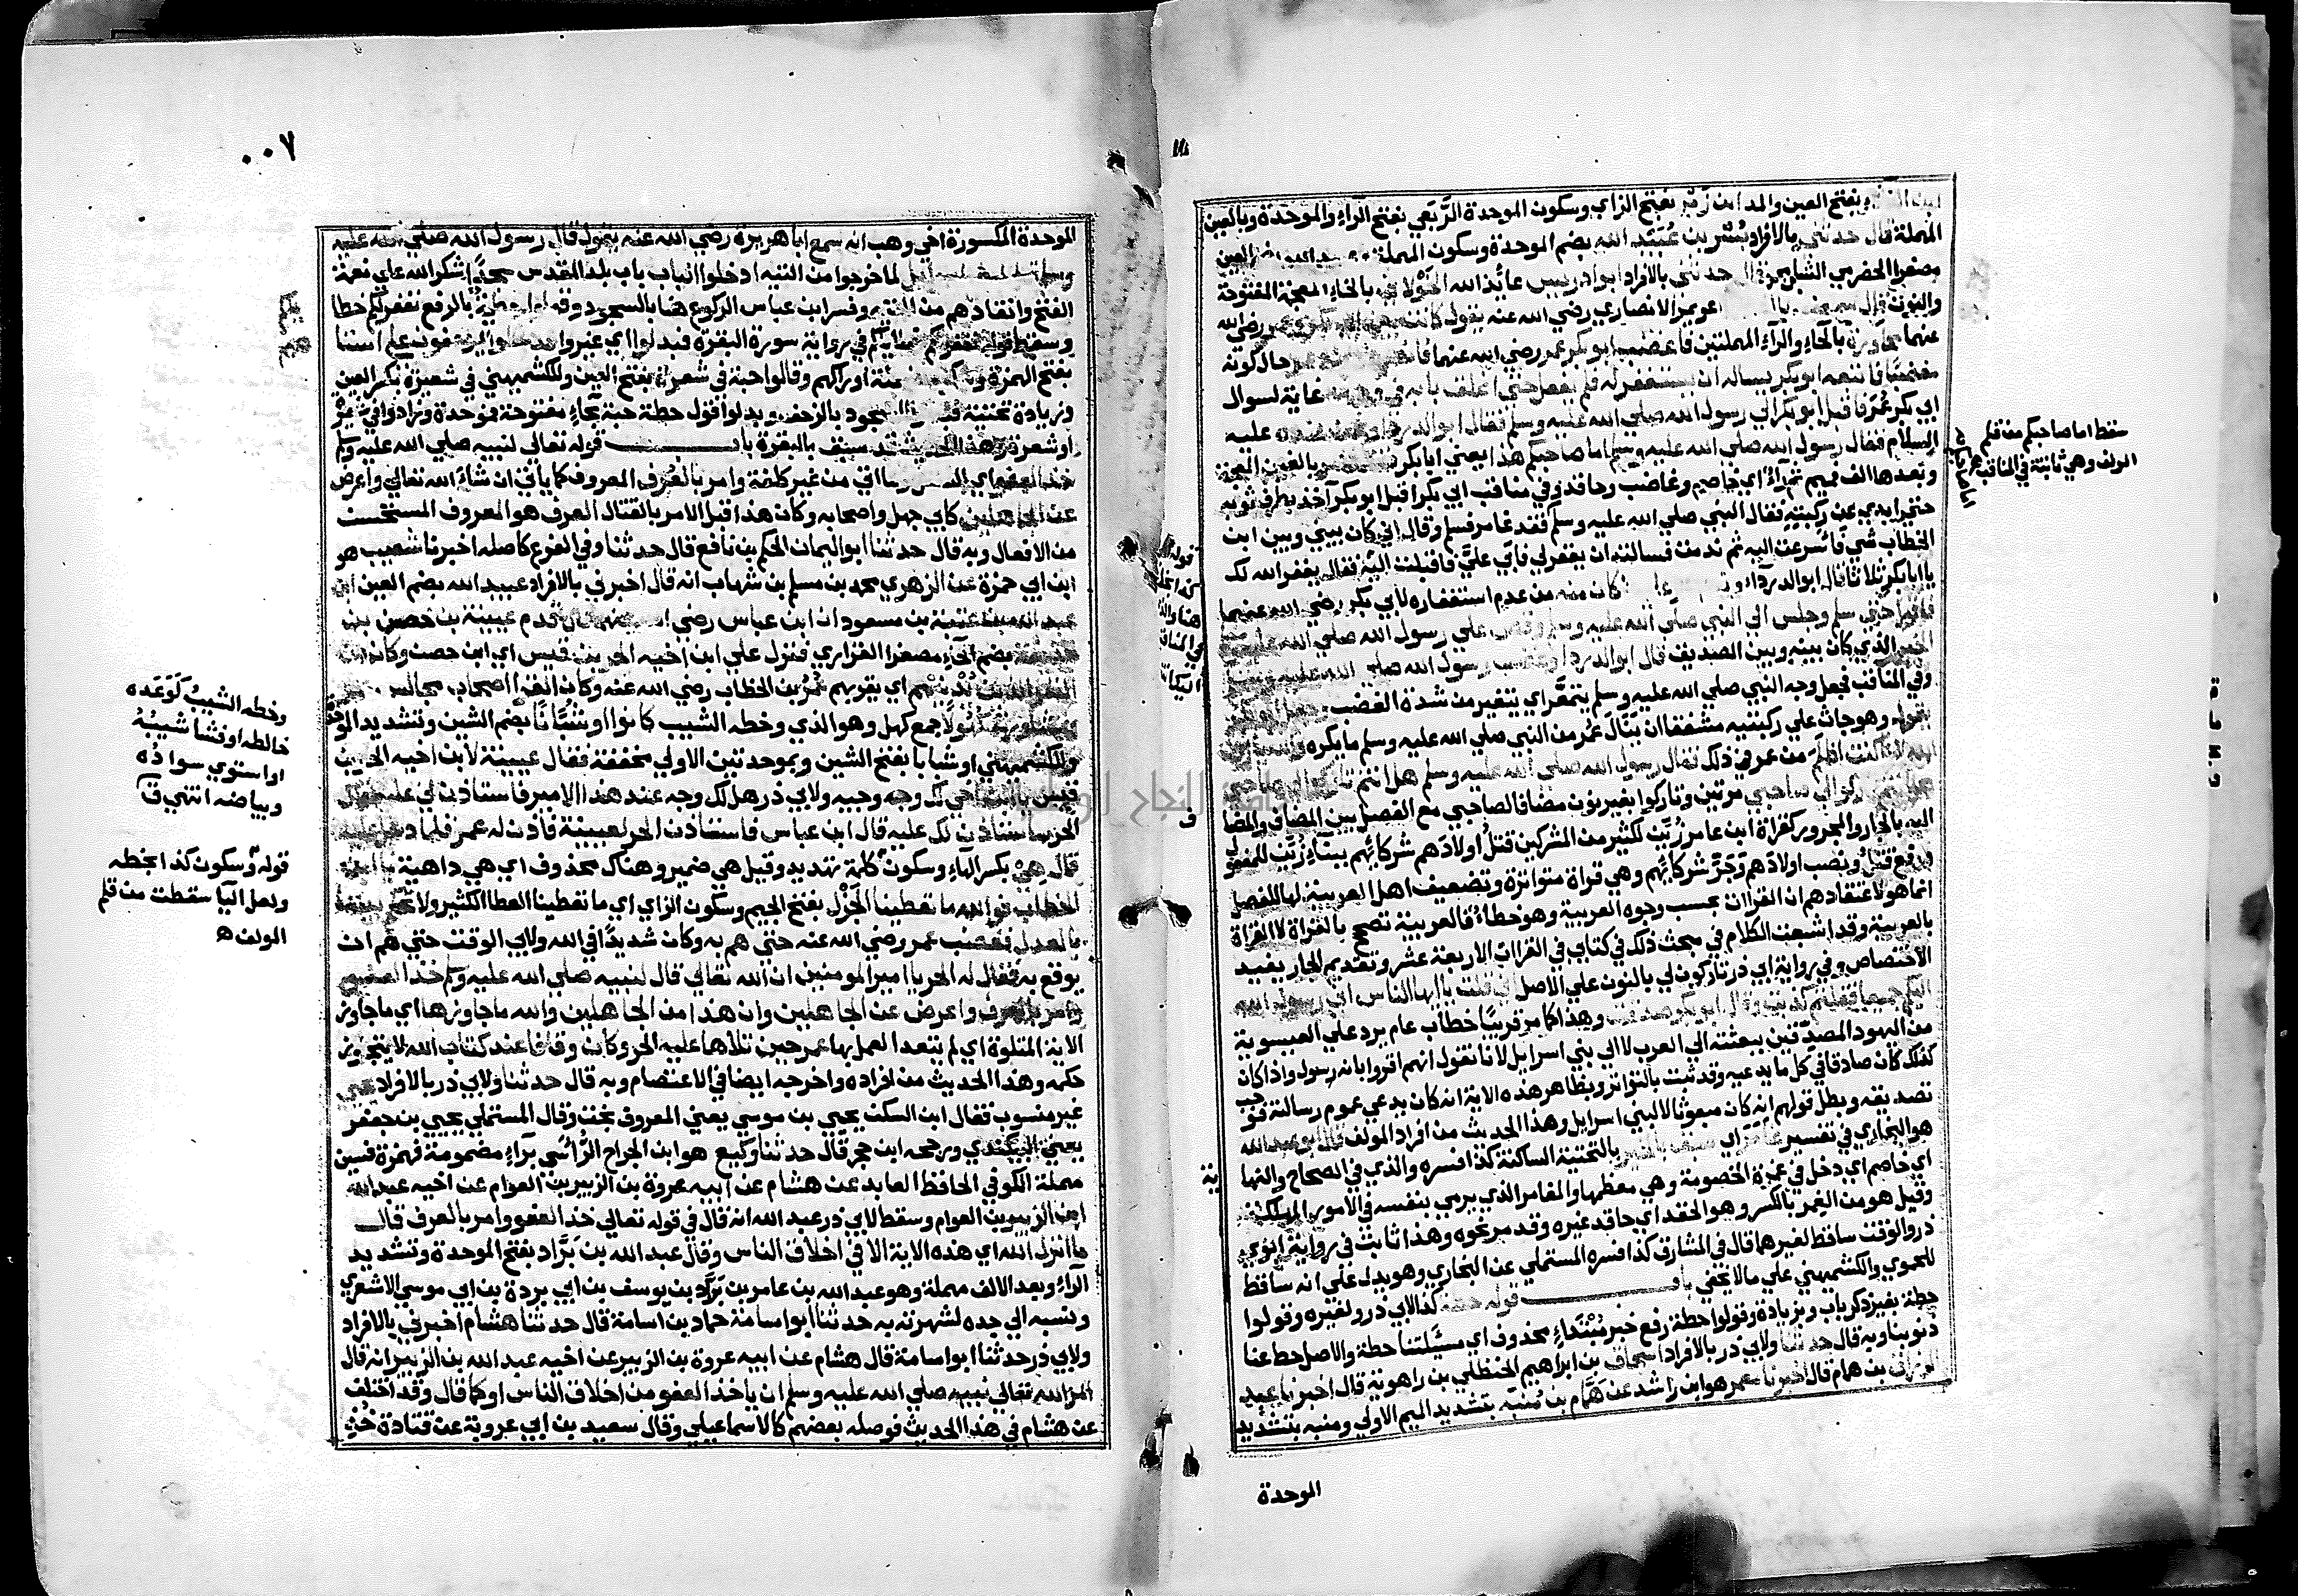 بفتح العين والمد ابن زَبْر بفتح الزاي وسكون الموحدة الرَّبَعي بفتح الراء والموحدة وبالعين
المهملة قال حدثني بالافراد بُسْر بن عُبَيْد الله بضم الموحدة وسكون المهملة
مصغرا الحضرمي الشامي قال حدثني بالافراد ابو ادريس عائذ الله الخَوْلاني بالخاء المعجمة المفتوحة
عويمر الانصاري رضي الله عنه يقول كانت بين ابي بكر وعمر رضي الله
عنهما محاورة بالحاء والراء المهملتين فاغضب ابو بكر عمر رضي الله عنهما حال كونه
مغضبا فاتبعه ابو بكر يساله ان يستغفر له فلم يفعل حتي اغلق بابه في وجهه غاية لسوال
ابي بكر عُمَرَ فاقبل ابو بكر الي رسول الله صلي الله عليه وسلم فقال ابو الدرداء ونحن عنده عليه
السلام فقال رسول الله صلي الله عليه وسلم اما صاحبكم هذا يعني ابا بكر فقد غامر بالغين المعجمة
وبعدها الف فميم فراء اي خاصم وغاضب وحاقد وفي مناقب ابي بكر اقبل ابو بكر آخذ بطرف ثوبه
حتي ابدي عن ركبتيه فقال النبي صلي الله عليه وسلم فقد غامر فسلم وقال اني كان بيني وبين ابن
الخطاب شي فاسرعت اليه ثم ندمت فسالته ان يغفر لي فابي عليَّ فاقبلت اليك فقال يغفر الله لك
يا ابا بكر ثلاثا قال ابو الدرداء كان منه من عدم استغفاره لابي بكر رضي الله عنهما
حتي سلم وجلس الي النبي صلي الله عليه وسلم وقص علي رسول الله صلي الله عليه وسلم
الخبر الذي كان بينه وبين الصديق قال ابو الدرداء وغضب رسول الله صلي الله عليه وسلم
وفي المناقب فجعل وجه النبي صلي الله عليه وسلم يتمعَّر اي يتغير من شدة الغضب
وهو جاث علي ركبتيه مشفقا ان يَنَالَ عُمَر من النبي صلي الله عليه وسلم ما يكره
لانا كنت اظلم من عمر في ذلك فقال رسول الله صلي الله عليه وسلم هل انتم
صاحبي مرتين وتاركوا بغير نون مضاف الصاحبي مع الفصل بين المضاف والمضا
اليه بالجار والمجرور كقراة ابن عامر زُيِّنَ لكثير من المشركين قتلُ اولادَهم شركائِهم ببناء زُيِّن للمفعو
ورفع قتلُ ونصب اولادَهم وَجَرِّ شركائِهم وهي قراة متواترة وتضعيف اهل العربية لها للفصل
انما هو لاعتقادهم ان القران بحسب وجوه العربية وهو خطا فالعربية تصحح بالقراة لا القراة
بالعربية وقد اشبعت الكلام في مبحث ذلك في كتابي في القراات الاربعة عشر وتقديم الجار يفيد
الاختصاص وفي رواية ابي ذر تاركون لي بالنون علي الاصل اني قلت يا ايها الناس اني رسول الله
اليكم جميعا فقلتم كذبت وقال ابو بكر صدقت وهذا كما مر قريبًا خطاب عام يرد علي العيسوية
من اليهود المصدقين ببعثته الي العرب لا الي بني اسرايل لانا نقول انهم اقروا بانه رسول واذا كان
كذلك كان صادقا في كل ما يدعيه وقد ثبت بالتواتر وبظاهر هذه الاية انه كان يدعي عموم رسالته فوجب
تصديقه وبطل قولهم انه كان مبعوثا لا لبني اسرايل وهذا الحديث من افراد المولف قال ابو عبد الله
هو البخاري في تفسير غامَرَ اي سبق بالخير بالتحتية الساكنة كذا فسره والذي في الصحاح والنها
اي خاصم اي دخل في غمرة الخصومة وهي معظمها والمغامر الذي يرمي بنفسه في الامور المهلكة
وقيل هو من الغمر بالكسر وهو الحقد اي حاقد غيره وقد مر نحوه وهذا ثابت في رواية ابوي
ذر والوقت ساقط لغيرهما قال في المشارق كذا فسره المستملي عن البخاري وهو يدل علي انه ساقط
للحموي والكشميهني علي ما لا يخفي باب قوله حطة كذا لابي ذر ولغيره وقولوا
حطة بغير ذكر باب وبزيادة وقولوا حطة رفع خبر مُبْتَداء محذوف اي مسئَلتنا حطة والاصل حط عنا
ذنوبنا وبه قال حدثنا ولابي ذر بالافراد اسحاق بن ابراهيم الحنظلي بن راهوية قال اخبرنا عبد
الرزاق بن همام قال اخبرنا معمر هو ابن راشد عن هَمَّام بن مُنَبِّه بتشديد الميم الاولي ومنبه بتشديد
الموحدة
سقط اما صاحبكم من قلم
المولف وهي ثابتة في المناقب
٠٠٧
الموحدة المكسورة اخي وهب انه سمع ابا هريرة رضي الله عنه يقول قال رسول الله صلي الله عليه
وسلم قيل لما خرجوا من التيه ادخلوا الباب باب بلد المقدس سجدًا شكر الله علي نعمة
الفتح وانقاذهم من التيه وفسر ابن عباس الركوع هنا بالسجود وقولوا حطة بالرفع نغفر لكم خطا
وسقط قوله نغفر لكم خطاياكم في رواية سورة البقرة فبدلوا اي غيروا علي استا
بفتح الهمزة اوراكهم وقالوا حبة في شعرة بفتح العين وللكشميهني في شعيرة بكسر العين
وزيادة تحتية السجود بالزحف وبدلوا قول حطة حبة بحاء مفتوحة فموحدة وزادوا في شعيرة
او شعرة وهذا الحديث قد سبق بالبقرة باب قوله تعالي لنبيه صلي الله عليه وسلم
خذ العفو اي من غير كلفة وامر بالعرف المعروف كما ياتي ان شاء الله تعالي واعرض
عن الجاهلين كابي جهل واصحابه وكان هذا قبل الامر بالقتال العرف هو المعروف المستحسن
من الافعال وبه قال حدثنا ابو اليمان الحكم بن نافع قال حدثنا وفي الفرع كاصله اخبرنا شعيب هو
ابن ابي حمزة عن الزهري محمد بن مسلم بن شهاب انه قال اخبرني بالافراد عبيد الله بضم العين ابن
عبد الله بن عتبة بن مسعود ان ابن عباس رضي الله عنهما قال قدم عيينة بن حصن بن
بضم الحاء مصغرا الفزاري فنزل علي ابن اخيه الحر بن قيس اي ابن حصن وكان من
النفر الذين يدنيهم اي يقربهم عُمَرُ بن الخطاب رضي الله عنه وكان القرا اصحاب مجالس
كُهُولًا جمع كهل وهو الذي وخطه الشيب كانوا او شُبَّانًا بضم الشين وتشديد الموحدة
وللكشميهني او شبابا بفتح الشين وبموحدتين الاولي مخففة فقال عيينة لابن اخيه الحر بن
قيس يا ابن اخي لك وجه وجيه ولابي ذر هل لك وجه عند هذا الامير فاستاذن لي عليه قال
الحر ساستاذن لك عليه قال ابن عباس فاستاذن الحر لعيينة فاذن له عمر فلما دخل عليه
قال هِيْ بكسر الهاء وسكون كلمة تهديد وقيل هي ضمير وهناك محذوف اي هي داهية يا ابن
الخطاب فوالله ما تعطينا الجَزْل بفتح الجيم وسكون الزاي اي ما تعطينا العطا الكثير ولا تحكم بيننا
بالعدل فغضب عمر رضي الله عنه حتي هم به وكان شديدًا في الله ولابي الوقت حتي هم ان
يوقع به فقال له الحر يا امير المومنين ان الله تعالي قال لنبيه صلي الله عليه وسلم خذ العفو
وامر بالعرف واعرض عن الجاهلين وان هذا من الجاهلين والله ما جاوزها اي ما جاوز
الاية المتلوة اي لم يتعد العمل بها عمر حين تلاها عليه الحر وكان وقافا عند كتاب الله لا يتجاوز
حكمه وهذا الحديث من افراده واخرجه ايضا في الاعتصام وبه قال حدثنا ولابي ذر بالافراد يحيي
غير منسوب فقال ابن السكن يحيي بن موسي يعني المعروف بخت وقال المستملي يحيي بن جعفر
يعني البيكندي ورجحه ابن حجر قال حدثنا وكيع هو ابن الجراح الرُّؤَاسي براء مضمومة فهمزة فسين
مهملة الكوفي الحافظ العابد عن هشام عن ابيه عروة بن الزبير بن العوام عن اخيه عبد الله
ابن الزبير بن العوام وسقط لابي ذر عبد الله انه قال في قوله تعالي خذ العفو وامر بالعرف قال
ما انزل الله اي هذه الاية الا في اخلاق الناس وقال عبد الله بن بَرَّاد بفتح الموحدة وتشديد
الراء وبعد الالف مهملة وهو عبد الله بن عامر بن بَرَّاد بن يوسف بن ابي بردة بن ابي موسي الاشعري
ونسبه الي جده لشهرته به حدثنا ابو اسامة حماد بن اسامة قال حدثنا هشام اخبرني بالافراد
ولابي ذر حدثنا ابو اسامة قال هشام عن ابيه عروة بن الزبير عن اخيه عبد الله بن الزبير انه قال
امر الله تعالي نبيه صلي الله عليه وسلم ان ياخذ العفو من اخلاق الناس او كما قال وقد اختلف
عن هشام في هذا الحديث فوصله بعضهم كالاسماعيلي وقال سعيد بن ابي عروبة عن قتادة خذ
وخطه الشيبُ كَوَعَده
خالطه او فشا شيبُهُ
او استوي سواده
وبياضه انتهي ق
قوله وسكون كذا بخطه
ولعل اليا سقطت من قلم
المولف ه